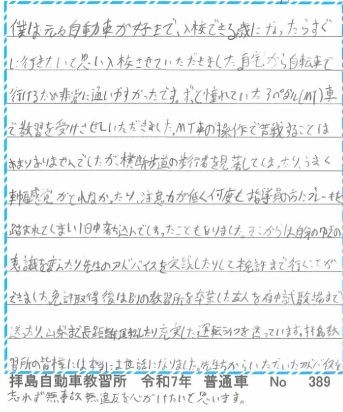 僕は元々自動車が好きで、入校できる歳になったらすぐ
に行きたいと思い入校させていただきました。自宅から自転車で
行けるため非常に通いやすかったです。ずっと憧れていた3ペダル(MT)車
で教習を受けさせていただきました。MT車の操作で苦戦することは
あまりありませんでしたが、横断歩道の歩行者を見落してしまったり、うまく
車幅感覚がとれなかったり、注意力が低く何度も指導員の方にブレーキを
踏まれてしまい1日中落ち込んでしまったこともありました。そこからは自分の中の
意識を変えたり先生のアドバイスを実践したりして検定まで行くことが
できました。免許取得後は別の教習所を卒業した友人を府中試験場まで
送ったり、山梨まで長距離運転したり充実した運転ライフを送っています。拝島教
習所の皆様には本当にお世話になりました。先生からいただいたアドバイスを
忘れず無事故無違反を心がけたいと思います。
拝島自動車教習所 令和7年 普通車 No 389